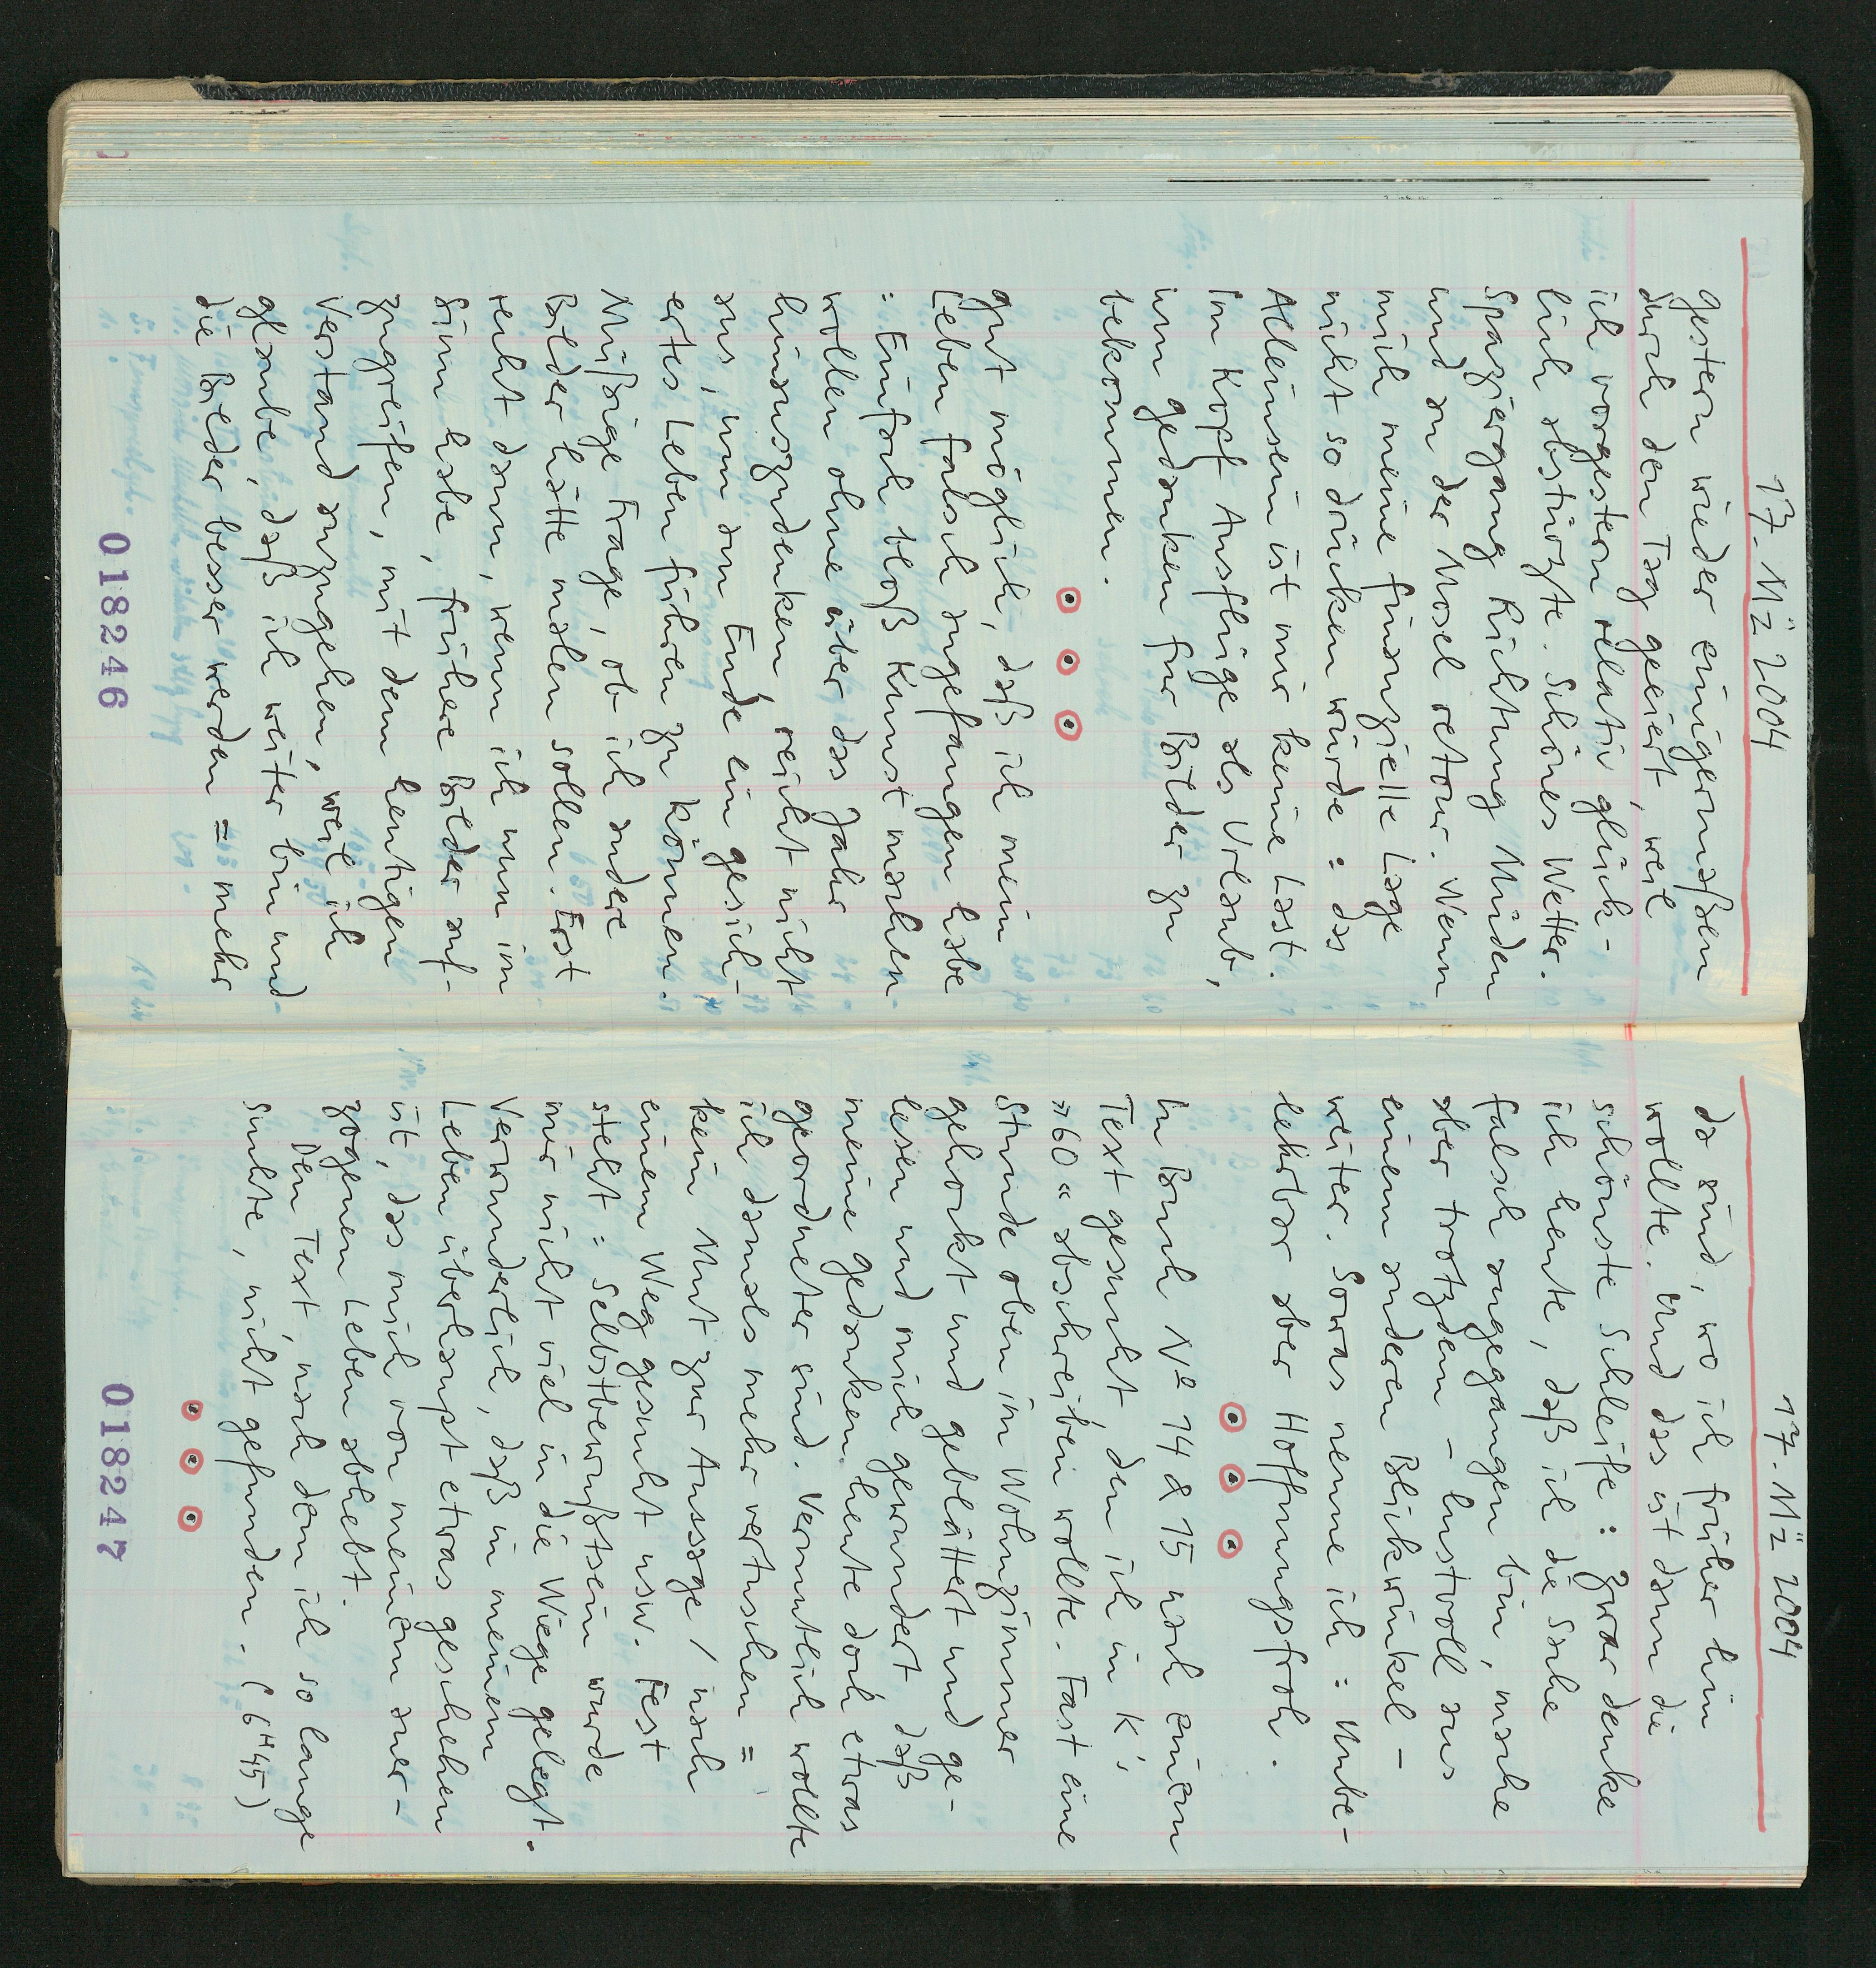 17. Mä 2004
gestern wieder einigermaßen
durch den Tag geeiert, weil
ich vorgestern relativ glück-
lich abstürzte. Schönes Wetter.
Spaziergang Richtung Müden
und an der Mosel retour. Wenn
mich meine finanzielle Lage
nicht so drücken würde : das
Alleinsein ist mir keine Last.
Im Kopf Ausflüge als Urlaub,
um gedanken für Bilder zu
bekommen.
gut möglich, daß ich mein
Leben falsch angefangen habe
: Einfach bloß Kunst machen
wollen ohne über das Jahr
hinauszudenken, reicht nicht
aus, um am Ende ein gesich-
ertes Leben führen zu können.
Müßige Frage, ob ich andere
Bilder hätte malen sollen. Erst
recht dann, wenn ich nun im
Sinn habe, frühere Bilder auf-
zugreifen, mit dem heutigen
Verstand anzugehen, weil ich
glaube, daß ich weiter bin und
die Bilder besser werden = mehr
018246
17. Mä 2004
da sind, wo ich früher hin
wollte. Und das ist dann die
schönste Schleife : Zwar denke
ich heute, daß ich die Sache
falsch angegangen bin, mache
aber trotzdem – lustvoll aus
einem anderen Blickwinkel –
weiter. Sowas nenne ich : Unbe-
lehrbar aber Hoffnungsfroh.
In Buch Nº 14 & 15 nach einem
Text gesucht, den ich in K's
»60« abschreiben wollte. Fast eine
Stunde oben im Wohnzimmer
gehockt und geblättert und ge-
lesen und mich gewundert daß
meine gedanken heute doch etwas
geordneter sind. Vermutlich wollte
ich damals mehr vertuschen =
kein Mut zur Aussage / nach
einem Weg gesucht usw. Fest
steht : Selbstbewußtsein wurde
mir nicht viel in die Wiege gelegt.
Verwunderlich, daß in meinem
Leben überhaupt etwas geschehen
ist, das mich von meinem aner-
zogenen Leben abhebt.
Den Text, nach dem ich so lange
suchte, nicht gefunden. (6ᴴ45)
018247